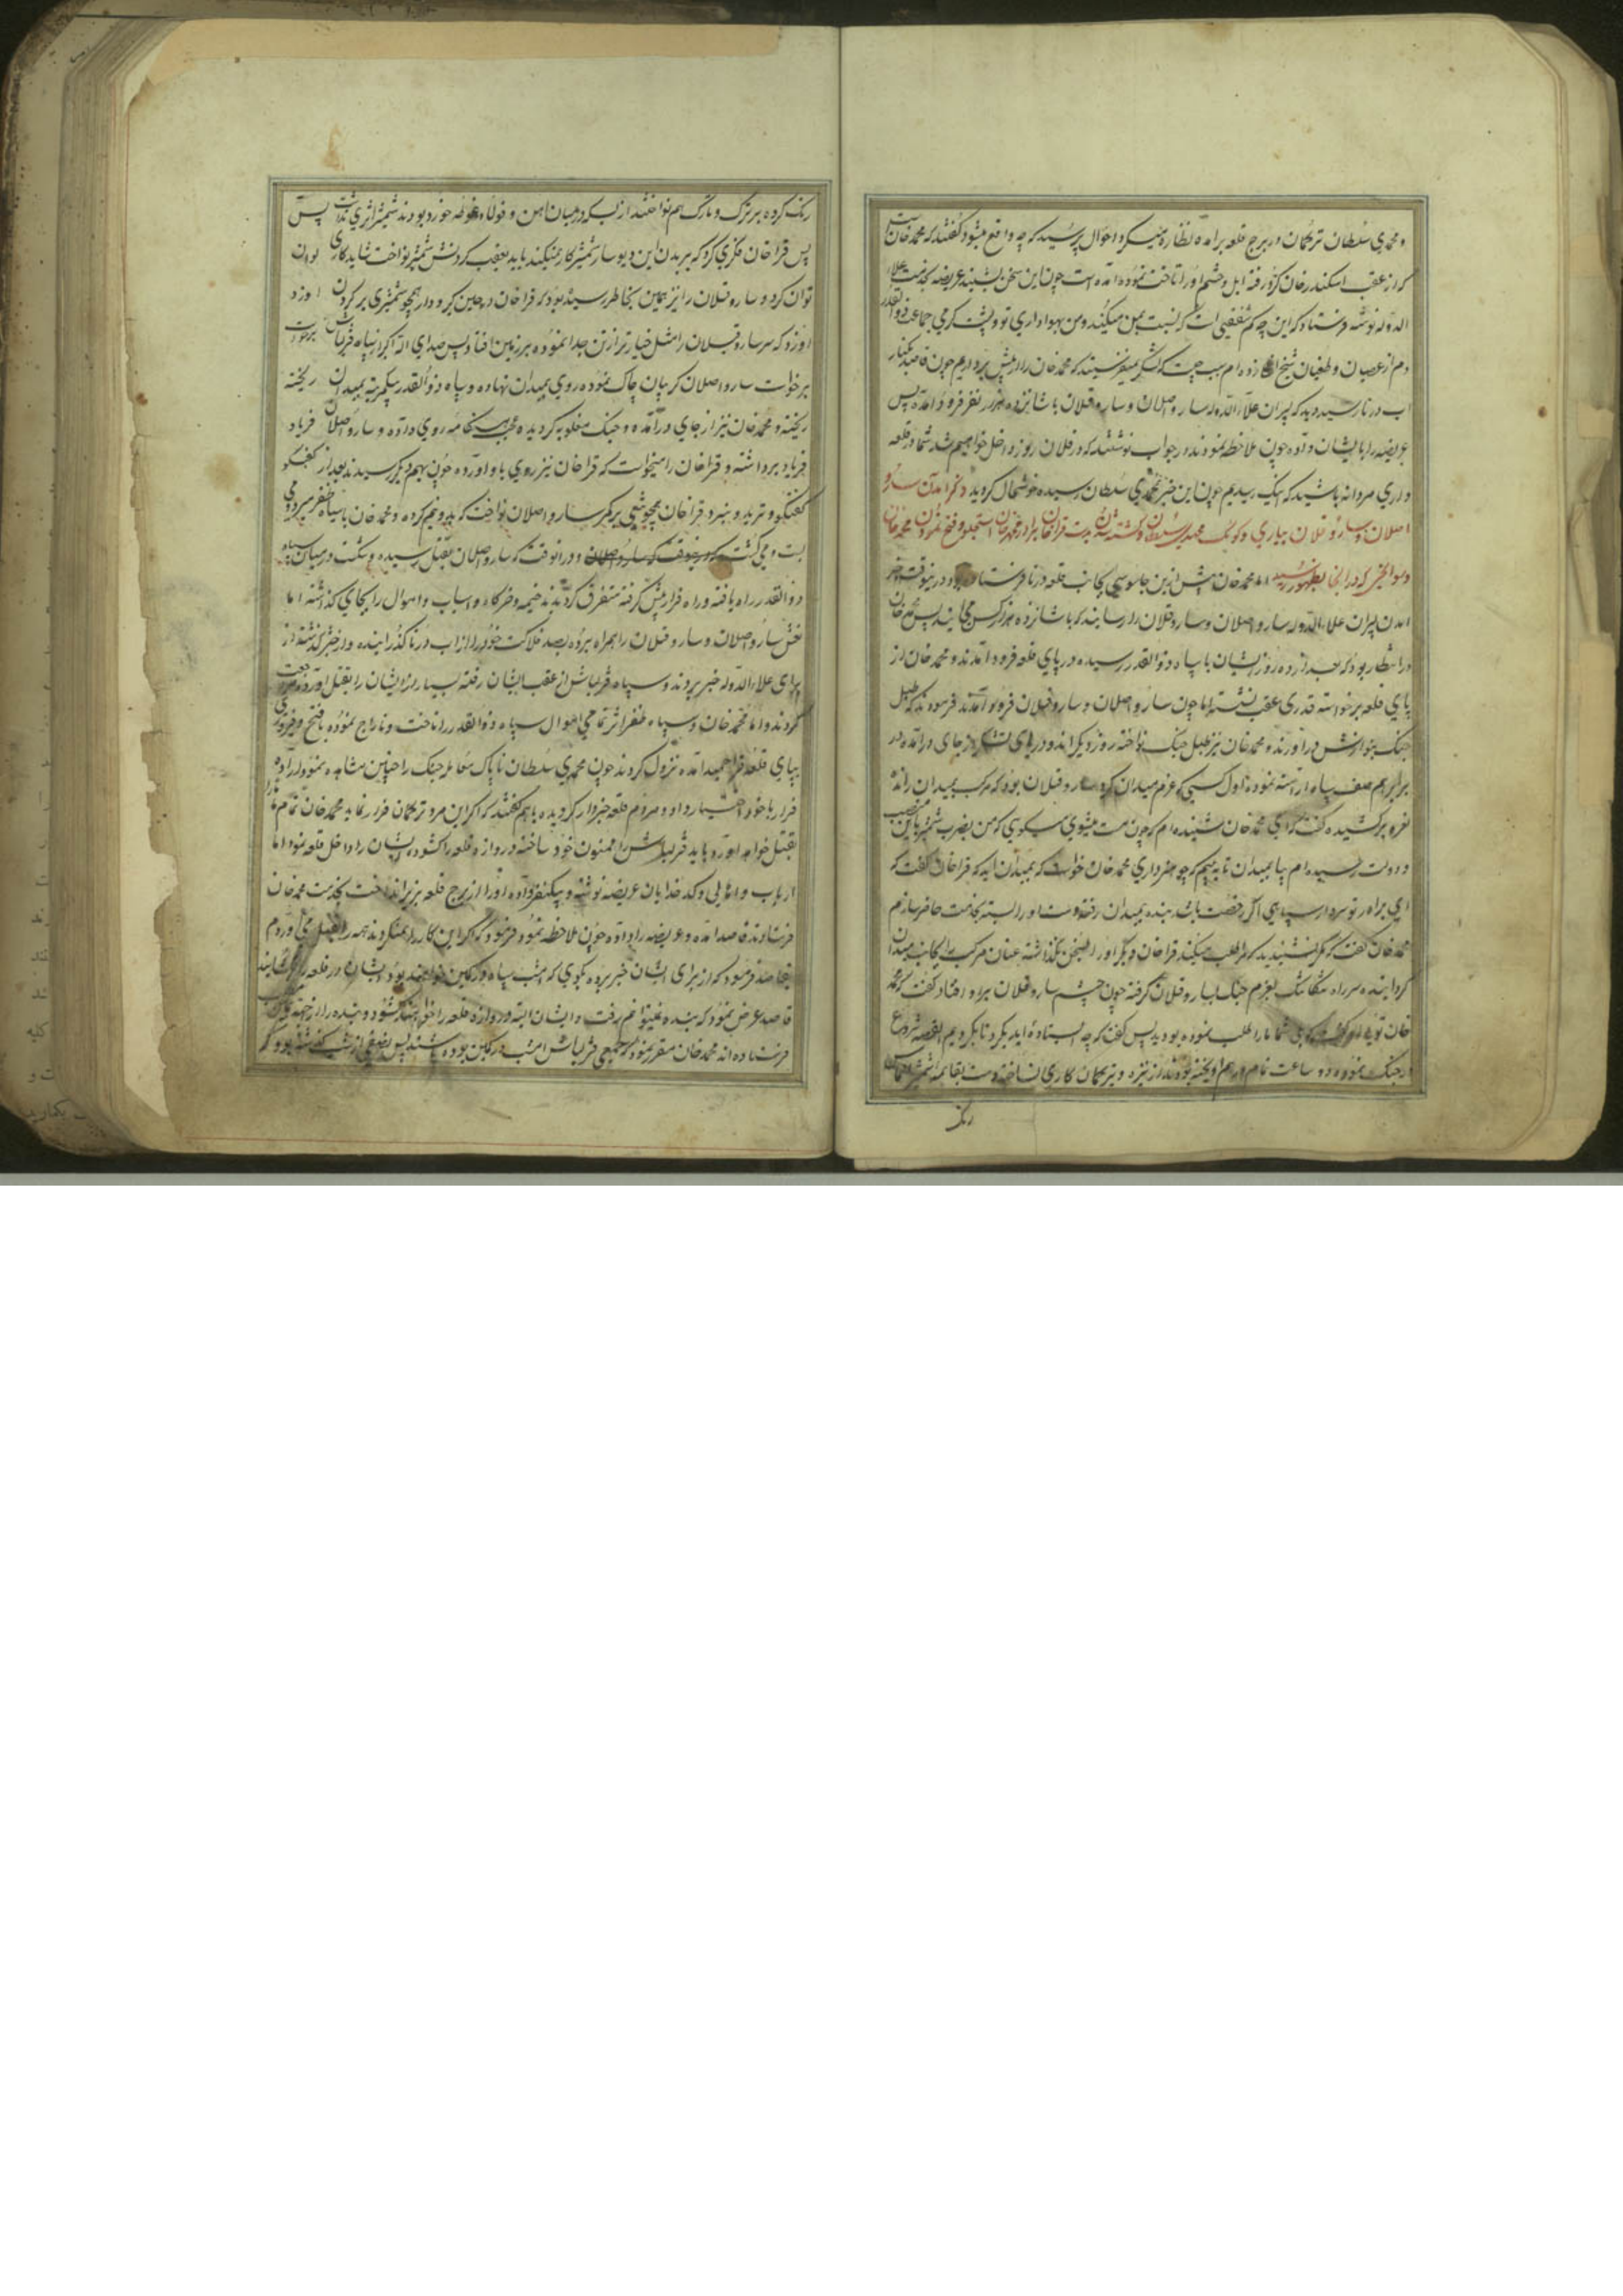 و محمدی سلطان ترکمان در برج قلعه برآمده نظاره میکرد احوال پرسید که چه واقع میشود گفتند که محمد خان است
که از عقب اسکندر خان کرد رفته ایل و حشم او را تاخت نموده آمده است چون این سخن بشنید عریضه بخدمت علاء
الدوله نوشته فرستاد که این چه کم شفقتی است که نسبت بمن میکنند و من بهواداری تو و پشت گرمی جماعت ذوالقدر
دم از عصیان و طغیان شیخ اغلی زده ام سبب چیست که لشکر نمیفرستید که محمد خان را از پیش برداریم چون قاصد بکنار
اب درنا رسید دید که پسران علاء الدوله سارو اصلان و سارو قپلان با شانزده هزار نفر فرود آمده پس
عریضه را بایشان داده چون ملاحظه نمودند در جواب نوشتند که در فلان روز داخل خواهیم شد شما در قلعه
داری مردانه باشید که اینک رسیدیم چون این خبر بمحمدی سلطان رسیده خوشحال گردید ذکر آمدن سارو
اصلان و سارو قپلان بیاری و کومک محمدی سلطان و کشته شدن بدست قراخان برادر محمد خان استجلو و فتح نمودن محمد خان
و سوانحی که در آنجا بظهور رسید اما محمد خان پیش ازین جاسوسی بجانب قلعه درنا فرستاده بود درینوقت خبر
آمدن پسران علاء الدوله سارو اصلان و سارو قپلان را رسانیدند که با شانزده هزار کس می آیند پس محمد خان
در انتظار بود که بعد از ده روز ایشان با سپاه ذوالقدر رسیده در پای قلعه فرود آمدند و محمد خان از
پای قلعه برخواسته قدری عقب نشسته اما چون سارو اصلان و سارو قپلان فرود آمدند فرمودند که طبل
جنگ بنوازش درآورند و محمد خان نیز طبل جنگ نواخته روز دیگر آن دو دریای لشکر از جای درآمده در
برابر هم صف سپاه آراسته نموده اول کسی که عزم میدان کرد سارو قپلان بود که مرکب بمیدان رانده
نعره برکشیده گفت که ای محمد خان شنیده ام که چون مست میشوی میگویی که من بضرب شمشیر باین منصب
و دولت رسیده ام بیا بمیدان تا ببینم که چه هنر داری محمد خان خواست که بمیدان آید که قراخان گفت که
ای برادر تو سردار سپاهی اگر رخصت باشد بنده بمیدان رفته دست او را بسته بخدمت حاضر سازم
محمد خان گفت که مگر نشنیدید که مرا طلب میکند قراخان دیگر او را بسخن نگذاشته عنان مرکب را بجانب میدان
گردانیده سر راه بعزم جنگ بسارو قپلان گرفته چون چشم سارو قپلان براو افتاد گفت که محمد
خان تویی او گفت که شما مارا طلب نموده بودید پس گفت که چه ایستاده اید بگرد تا بگردیم القصه شروع
در جنگ نموده دو ساعت تمام درهم آویخته بودند از نیزه و تیر کمان کاری نساخته دست بقائمه شمشیر الماس
رنگ
رنگ کرده بر ترک و تارک هم نواختند از بسکه در میان آهن و فولاد غوطه خورده بودند شمشیر اثری نداشت پس
پس قراخان فکری کرد که بر بدن این دیو سار شمشیر کار نمیکند باید بعقب گردنش شمشیر نواخت شاید کاری توان
توان کرد و سارو قپلان را نیز همین بخاطر رسیده بود که قراخان در چین کرد و دار همچو شمشیری بر گردن او زد
او زد که سر سارو قپلان را مثل خیار تر از تن جدا نموده بر زمین افتاد پس صدای الله اکبر از سپاه قزلباش برخواست
برخواست سارو اصلان گریبان چاک نموده روی بمیدان نهاده و سپاه ذوالقدر بیکمرتبه بمیدان ریخته
ریخته و محمد خان نیز از جای درآمده و جنگ مغلوبه گردیده عجب هنگامه روی داده و سارو اصلان فریاد
فریاد برداشته و قراخان را میخواست که قراخان نیز روی باو آورده چون بهم دیگر رسیدند بعد از گفتگو
گفتگو و تردید و نبرد قراخان همچو تیغی بر کمر سارو اصلان نواخت که بدو نیم کرده و محمد خان با سپاه ظفر میزد و می
بست و می کشت و در آنوقت که سارو اصلان بقتل رسیده و شکست در میان سپاه
ذوالقدر راه یافته و راه فرار پیش گرفته متفرق گردیدند خیمه و خرگاه و اسباب و اموال را بجای گذاشته اما
نعش سارو اصلان و سارو قپلان را همراه برده بصد فلاکت خود را از آب درنا گذرانیده و از خبر گذشته از
برای علاء الدوله خبر بردند و سپاه قزلباش از عقب ایشان رفته بسیار از ایشان را بقتل آورده مراجعت
کردند و اما محمد خان و سپاه ظفر اثر تمامی اموال سپاه ذوالقدر را تاخت و تاراج نموده با فتح و فیروزی
بپای قلعه قراحمید آمده نزول کردند چون محمدی سلطان ناپاک معامله جنگ را چنین مشاهده نمود اراده
فرار با خود اختیار داد و مردم قلعه خبردار گردیده با هم گفتند که اگر این مرد ترکمان فرار نماید محمد خان تمام ما را
بقتل خواهد آورد باید قزلباش را ممنون خود ساخته دروازه قلعه را گشوده ایشان را داخل قلعه نمود اما
ارباب و اهالی و کدخدایان عریضه نوشته و بیکنفر داده او را از برج قلعه بزیر انداخت بخدمت محمد خان
فرستادند قاصد آمده و عریضه را داده چون ملاحظه نمود فرمود که اگر این کار را نمیکردند همه را بقتل می آوردم
بقاصد فرمود که از برای ایشان خبر برده بگوی که امشب سپاه در کمین خواهند بود ایشان در قلعه را گشایند
قاصد عرض نمود که بنده نمیتوانم رفت و ایشان البته دروازه قلعه را خواهند گشود و بنده را از جهة
فرستاده اند محمد خان مقرر نمود که جمعی قزلباش امشب در کمین بوده باشند پس نصفی از شب گذشته بود که